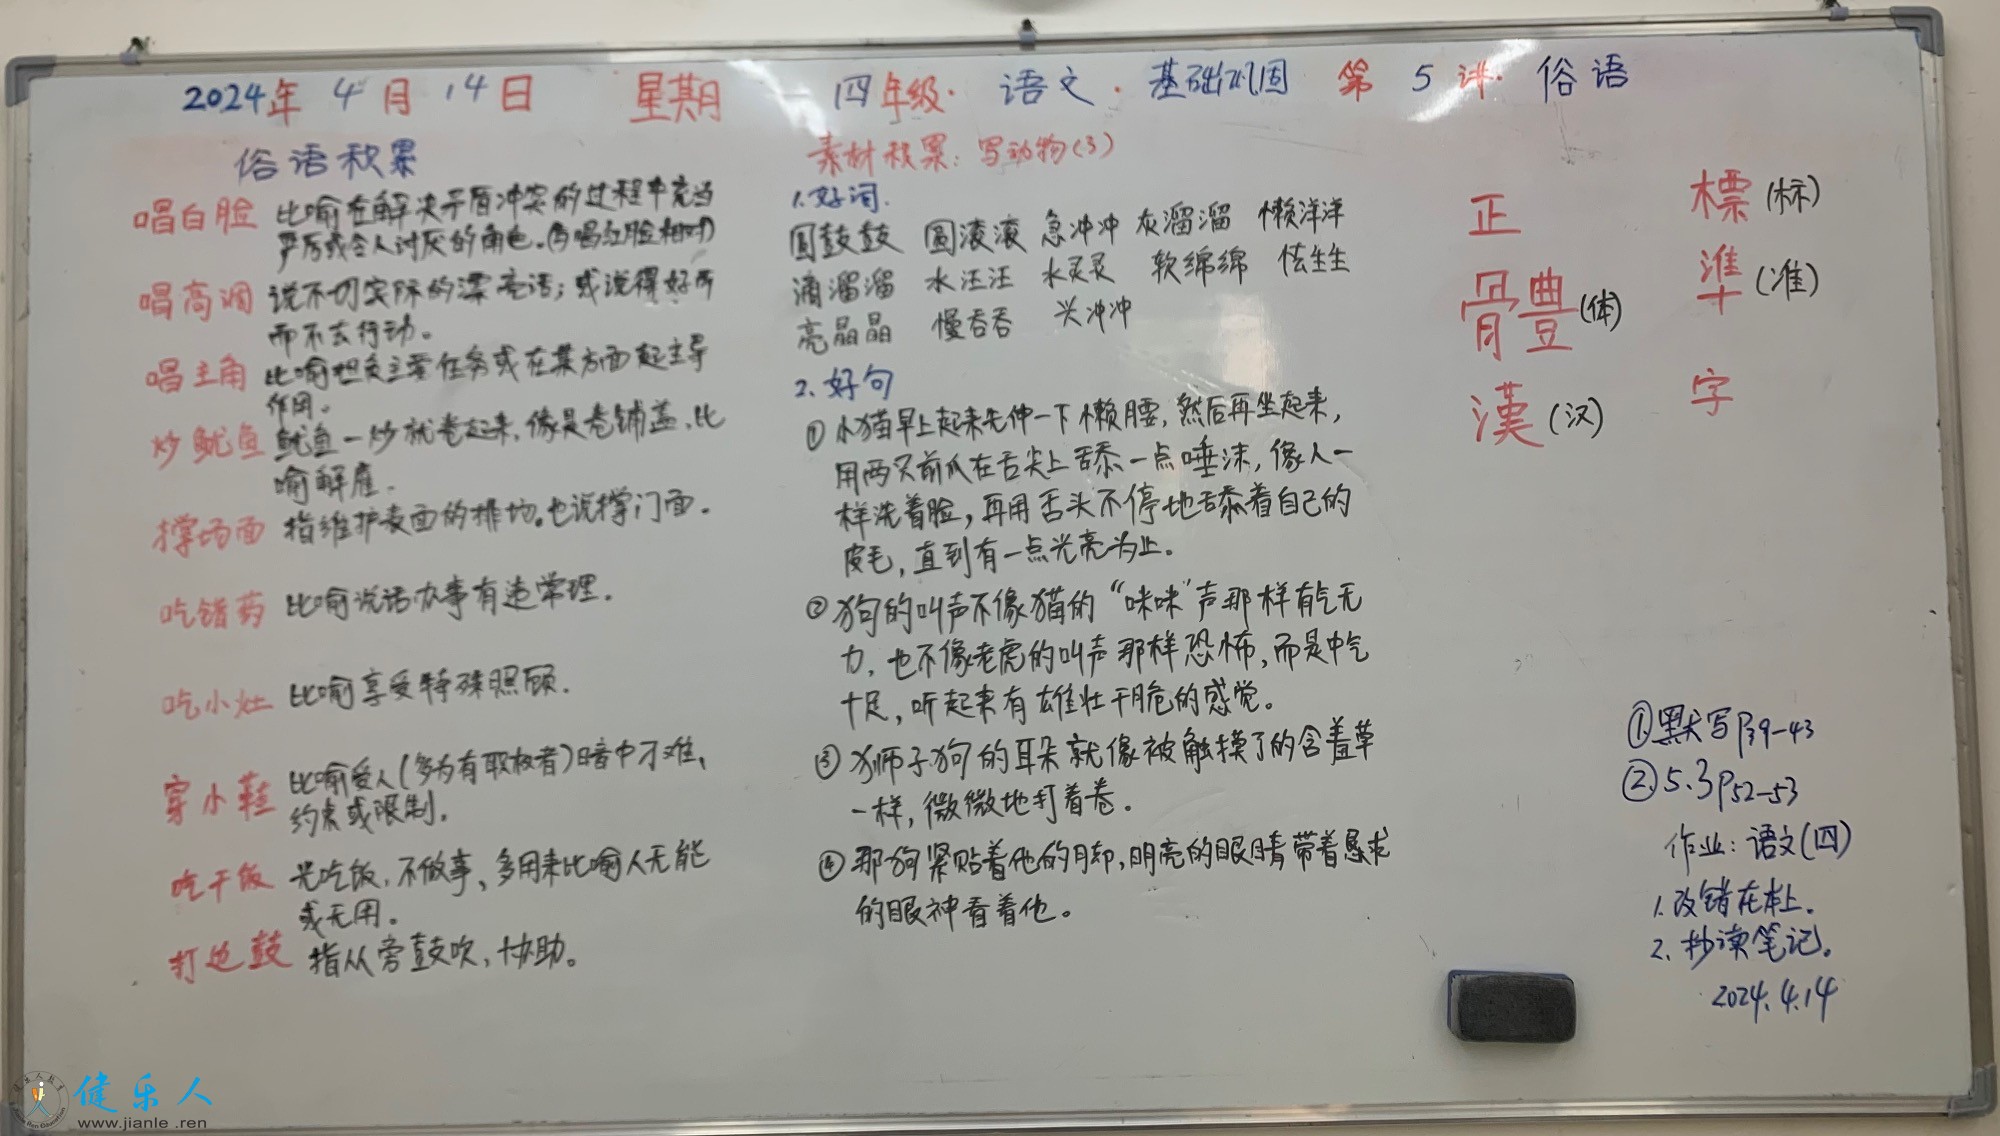 2024年 4月 14日 星期 四年级·语文·基础巩固 第5讲·俗语
俗语积累
唱白脸 比喻在解决矛盾冲突的过程中充当
严厉或令人讨厌的角色。(与唱红脸相对)
唱高调 说不切实际的漂亮话;或说得好听
而不去行动。
唱主角 比喻担负主要任务或在某方面起主导
作用。
炒鱿鱼 鱿鱼一炒就卷起来,像是卷铺盖,比
喻解雇.
撑场面 指维护表面的排场。也说撑门面.
吃错药 比喻说话办事有违常理.
吃小灶 比喻享受特殊照顾.
穿小鞋 比喻受人(多为有职权者)暗中刁难、
约束或限制.
吃干饭 光吃饭,不做事,多用来比喻人无能
或无用。
打边鼓 指从旁鼓吹,协助。
素材积累:写动物(3)
1.好词.
圆鼓鼓 圆滚滚 急冲冲 灰溜溜 懒洋洋
滴溜溜 水汪汪 水灵灵 软绵绵 怯生生
亮晶晶 慢吞吞 兴冲冲
2.好句
①小猫早上起来先伸一下懒腰,然后再坐起来,
用两只前爪在舌尖上舔一点唾沫,像人一
样洗着脸,再用舌头不停地舔着自己的
皮毛,直到有一点光亮为止。
②狗的叫声不像猫的“咪咪”声那样有气无
力,也不像老虎的叫声那样恐怖,而是中气
十足,听起来有雄壮干脆的感觉。
③狮子狗的耳朵就像被触摸了的含羞草
一样,微微地打着卷.
④那狗紧贴着他的脚,明亮的眼睛带着恳求
的眼神看着他。
正 標(标)
骨豊(体) 準(准)
漢(汉) 字
①默写P39-43
②5.3P52-53
作业:语文(四)
1.改错在本上.
2.抄读笔记.
2024.4.14
健乐人
www.jianle.ren